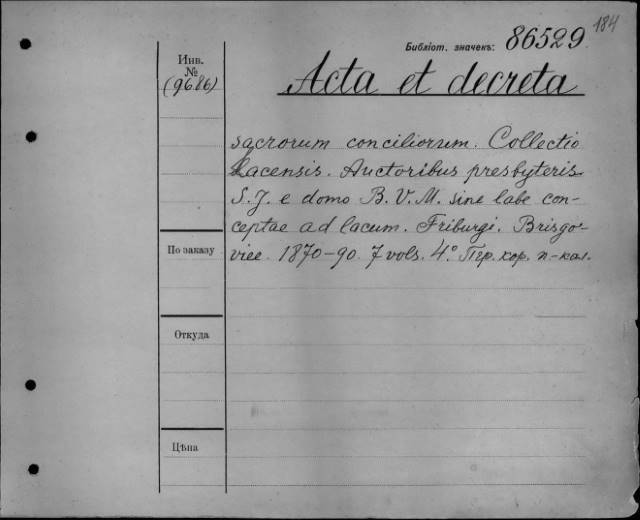 184
Библіот. значекъ: 86529
Инв.
№
(9686)
Acta et decreta
sacrorum conciliorum. Collectio
Lacensis. Auctoribus presbyteris
S. J. e domo B. V. M. sine labe con-
ceptae ad lacum. Friburgi. Brisgo-
viee. 1870-90. 7 vols. 4° Пер. кор. п-кал.
По заказу
Откуда
Цѣна